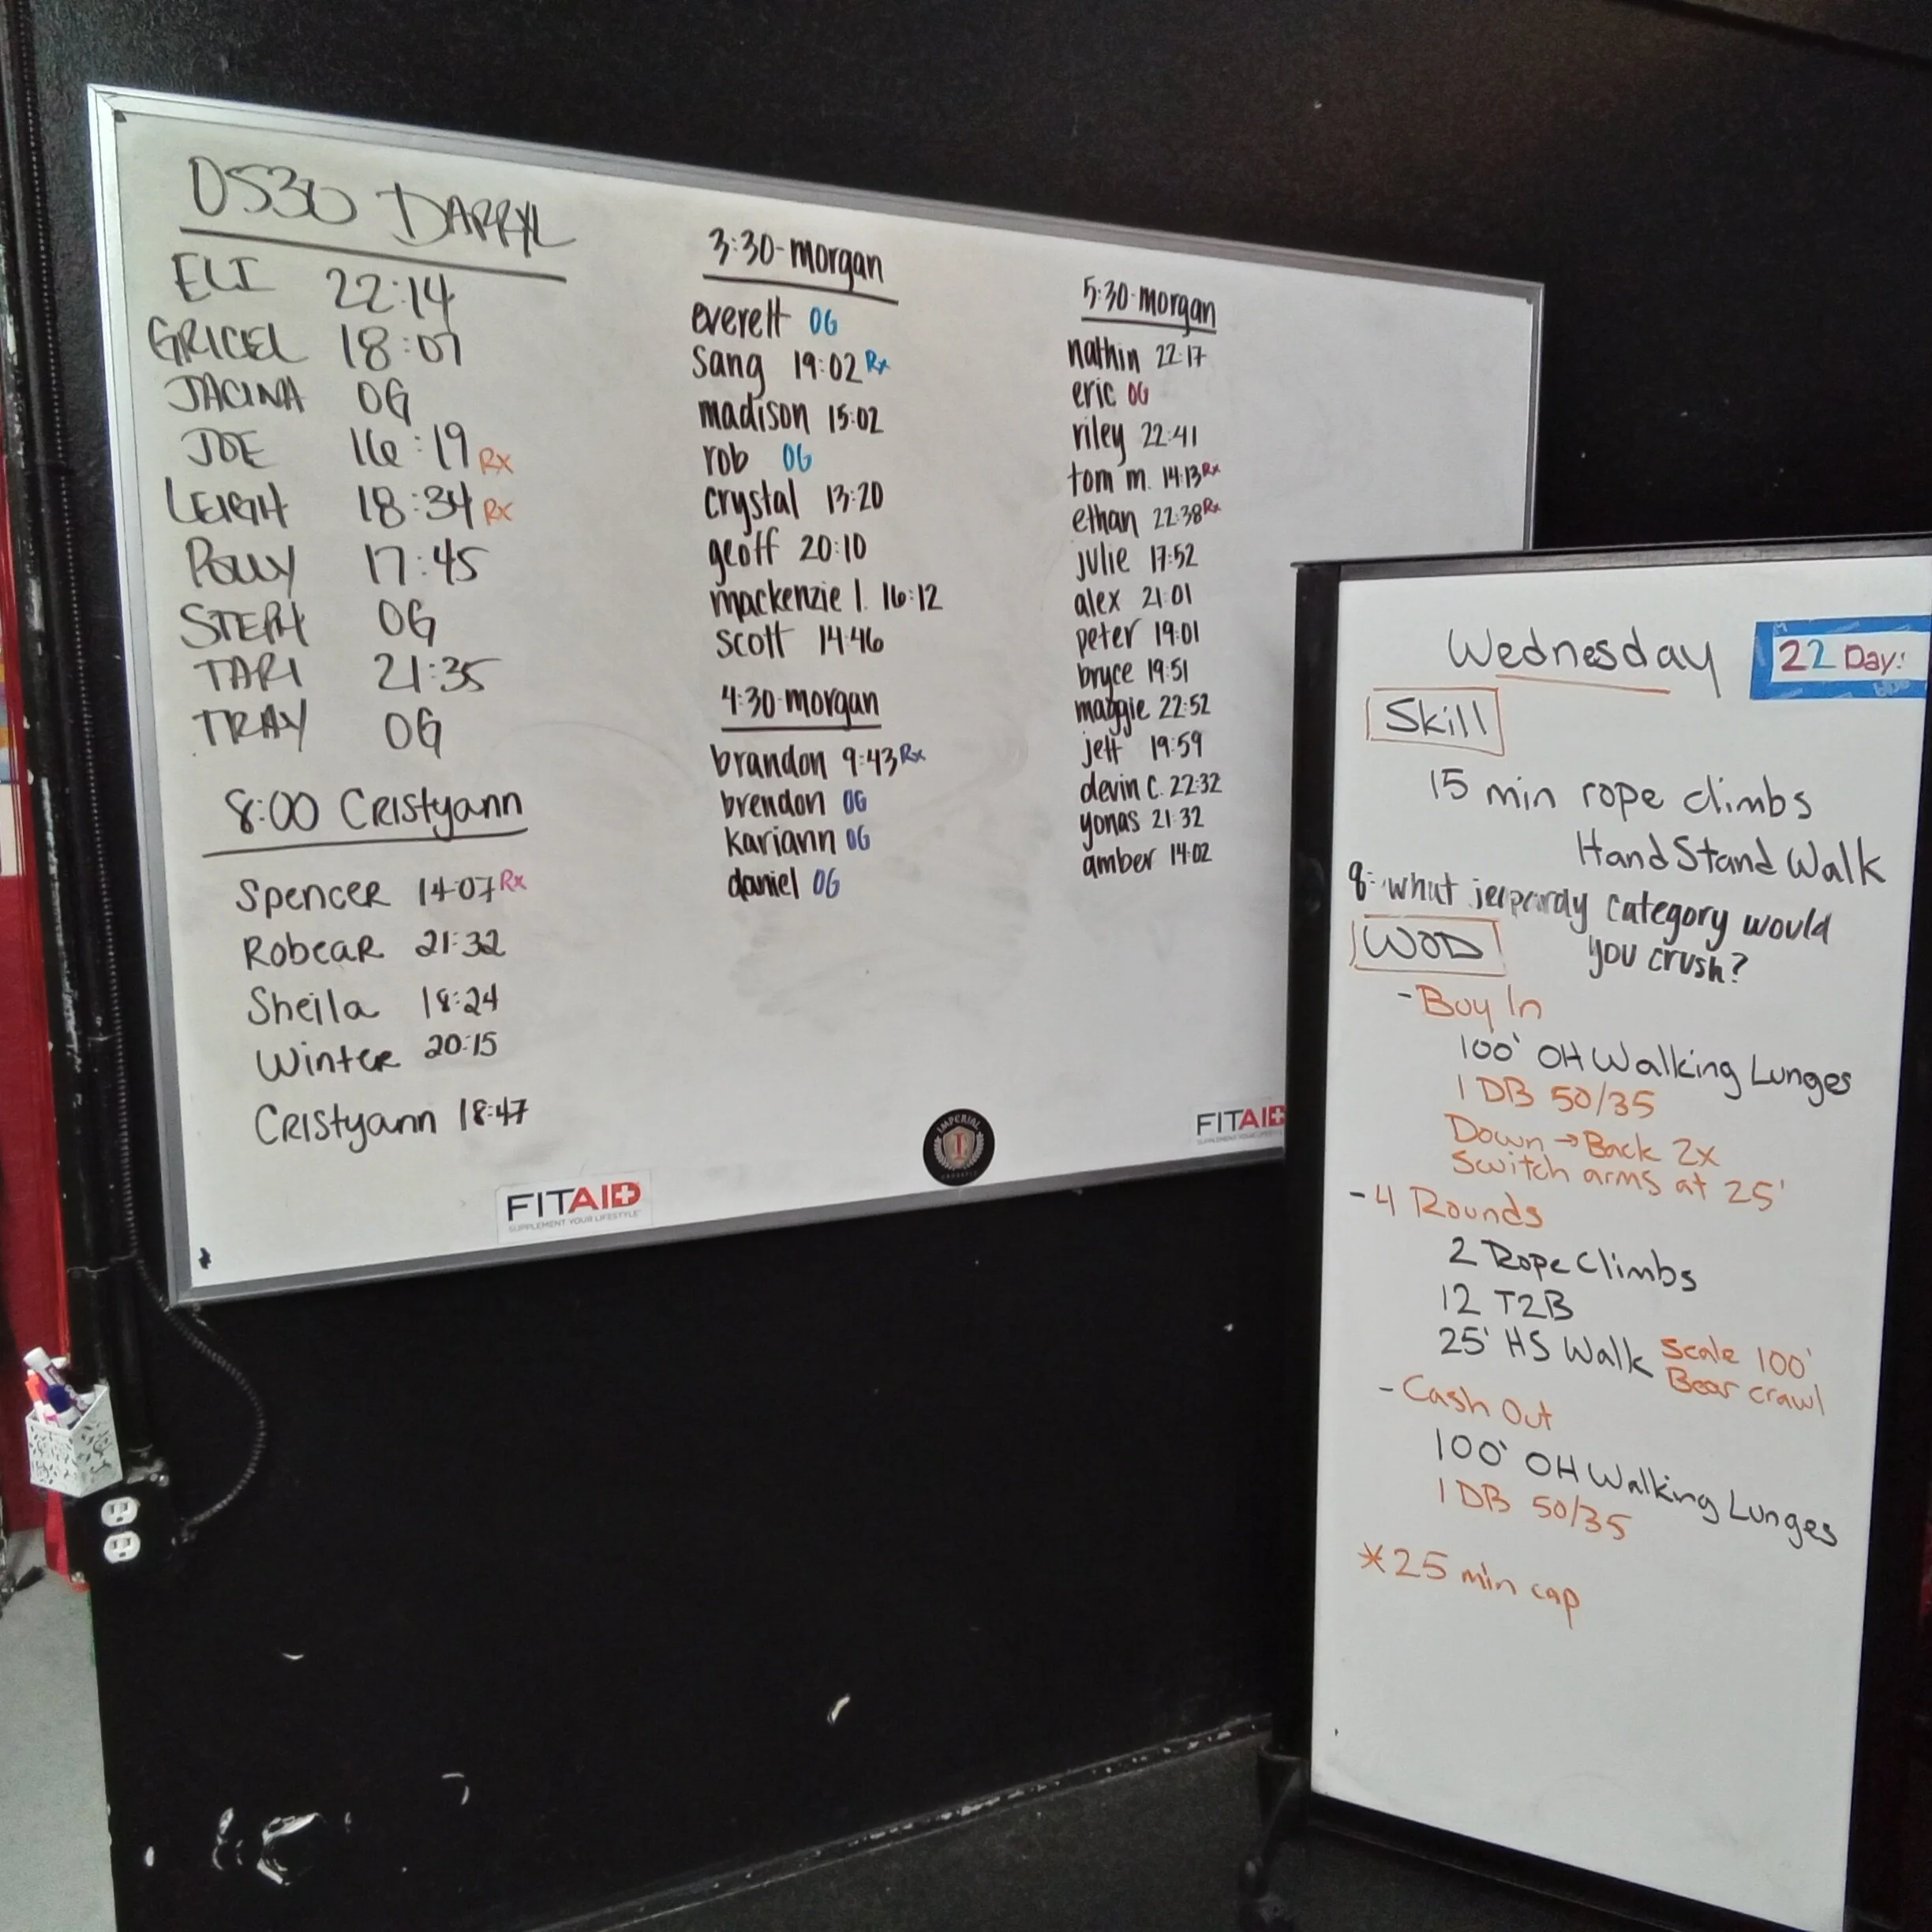 0530 DARRYL
ELI 22:14
GRICEL 18:07
JACINA OG
JOE 16:19 Rx
LEIGH 18:34 Rx
POLLY 17:45
STEPH OG
TARI 21:35
TRAY OG
8:00 Cristyann
Spencer 14:07 Rx
Robear 21:32
Sheila 18:24
Winter 20:15
Cristyann 18:47
FITAID
SUPPLEMENT YOUR LIFESTYLE
3:30-morgan
everett OG
sang 19:02 Rx
madison 15:02
rob OG
crystal 13:20
geoff 20:10
mackenzie l. 16:12
scott 14:46
4:30-morgan
brandon 9:43 Rx
brendon OG
kariann OG
daniel OG
IMPERIAL
I
CROSSFIT
5:30-morgan
nathin 22:17
eric OG
riley 22:41
tom m. 14:13 Rx
ethan 22:38 Rx
julie 17:52
alex 21:01
peter 19:01
bryce 19:51
maggie 22:52
jeff 19:59
devin C. 22:32
yonas 21:32
amber 14:02
FITAID
Wednesday
22 Day
Skill
15 min rope climbs
HandStand Walk
q: what jeopardy category would
you crush?
WOD
- Buy In
100' OH Walking Lunges
1 DB 50/35
Down → Back 2x
Switch arms at 25'
- 4 Rounds
2 Rope Climbs
12 T2B
25' HS Walk Scale 100'
Bear crawl
- Cash Out
100' OH Walking Lunges
1 DB 50/35
*25 min cap